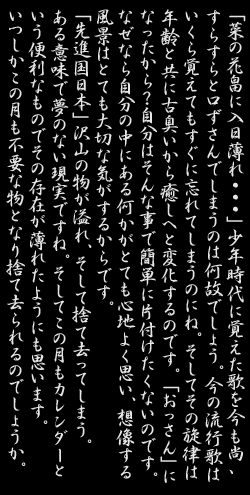 「菜の花畠に入日薄れ・・・」少年時代に覚えた歌を今も尚、
すらすらと口ずさんでしまうのは何故でしょう。今の流行歌は
いくら覚えてもすぐに忘れてしまうのにね。そしてその旋律は
年齢と共に古臭いから癒しへと変化するのです。「おっさん」に
なったから？自分はそんな事で簡単に片付けたくないのです。
なぜなら自分の中にある何かがとても心地よく思い、想像する
風景はとても大切な気がするからです。
「先進国日本」沢山の物が溢れ、そして捨て去ってしまう。
ある意味で夢のない現実ですね。そしてこの月もカレンダーと
いう便利なものでその存在が薄れたようにも思います。
いつしかこの月も不要な物となり捨て去られるのでしょうか。